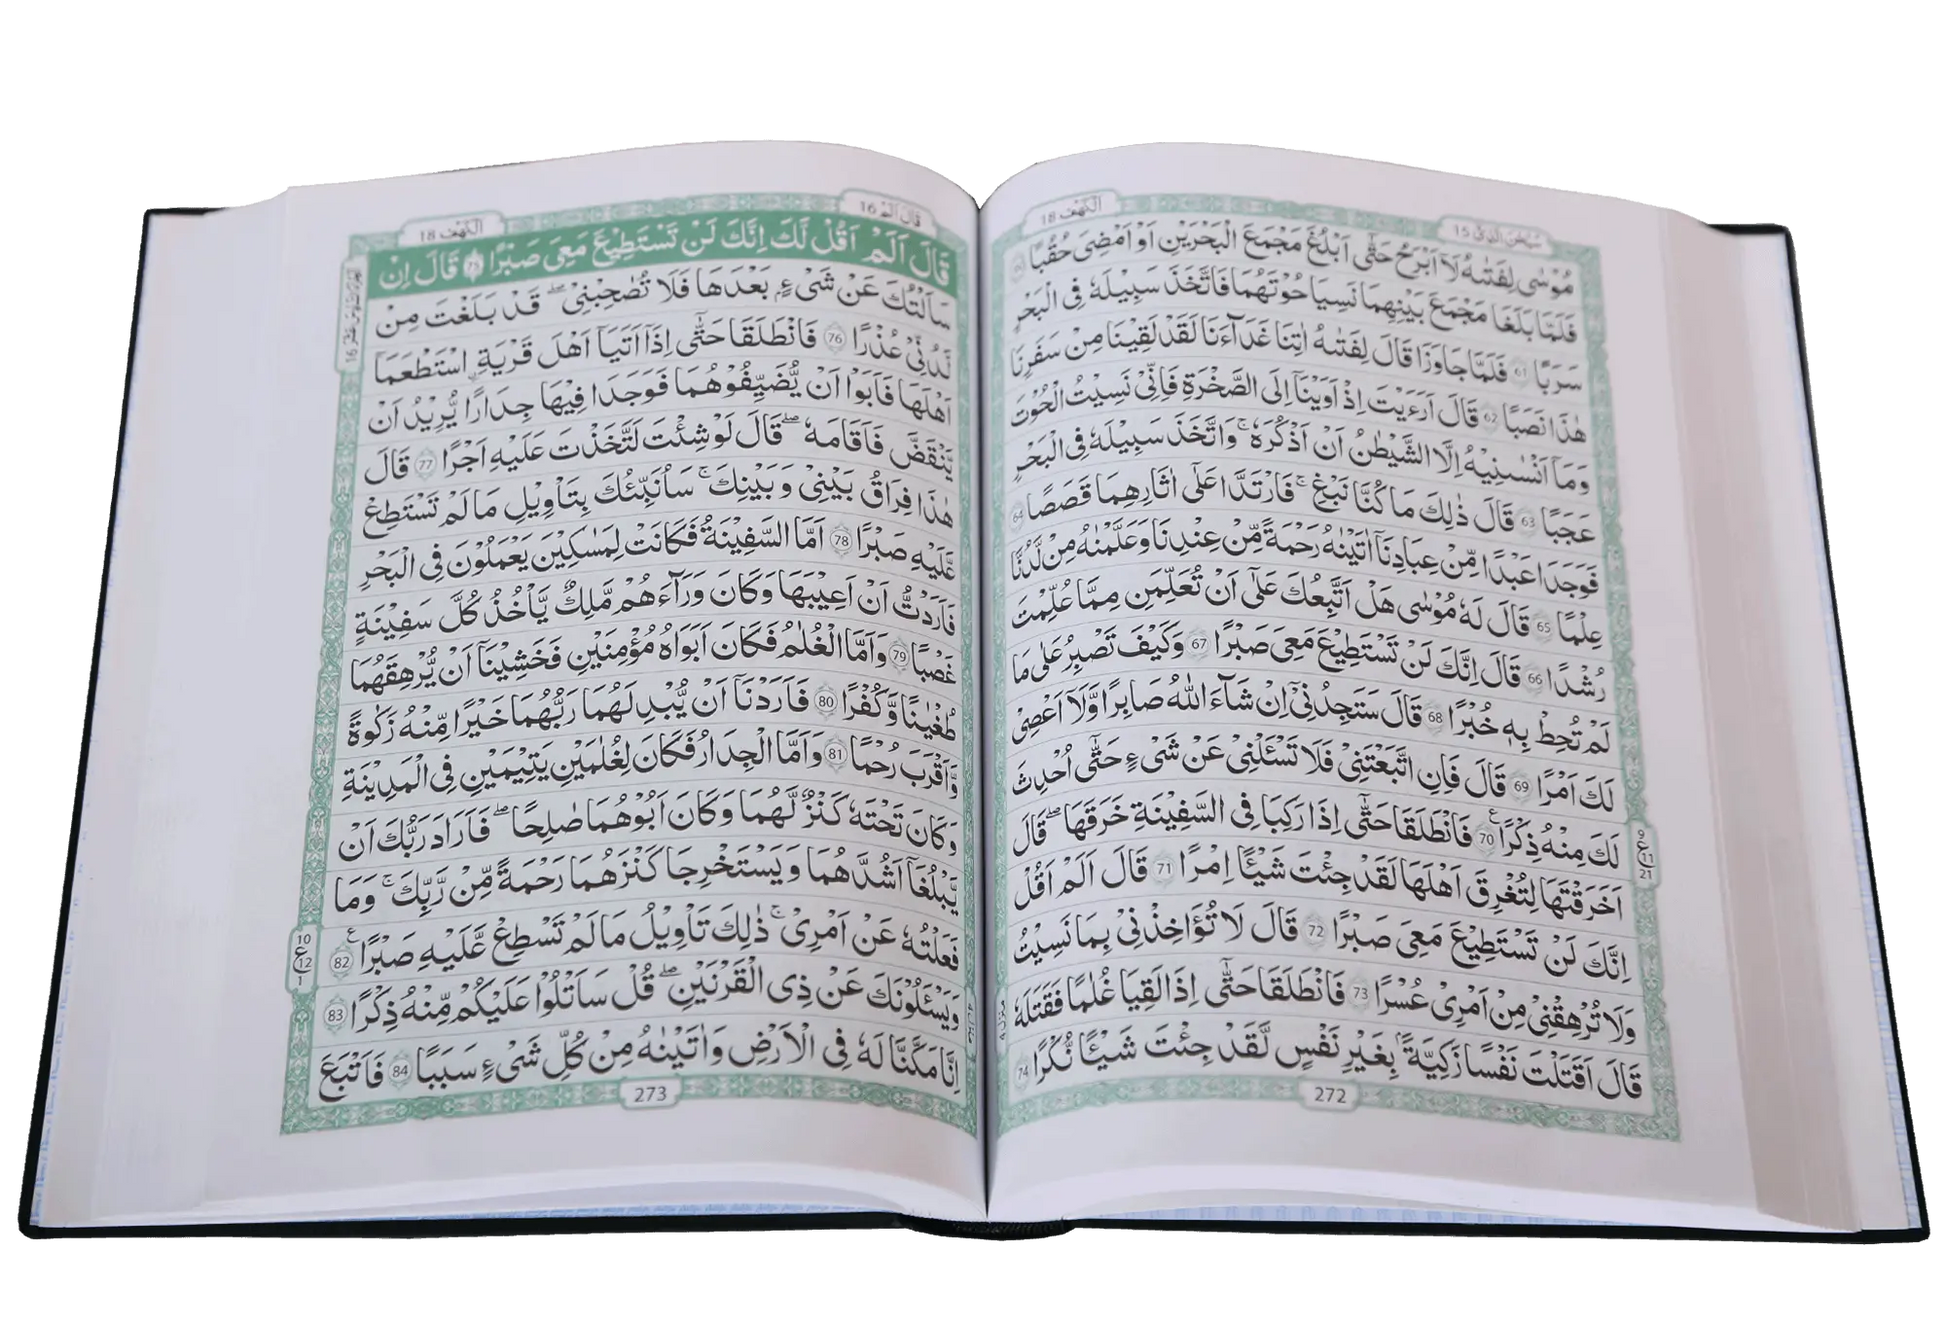 الكهف 18
سبحن الذي 15
مُوْسٰى لِفَتٰىهُ لَاۤ اَبْرَحُ حَتّٰۤى اَبْلُغَ مَجْمَعَ الْبَحْرَيْنِ اَوْ اَمْضِىَ حُقُبًا
فَلَمَّا بَلَغَا مَجْمَعَ بَيْنِهِمَا نَسِيَا حُوْتَهُمَا فَاتَّخَذَ سَبِيْلَهٗ فِى الْبَحْرِ
سَرَبًا 61 فَلَمَّا جَاوَزَا قَالَ لِفَتٰىهُ اٰتِنَا غَدَآءَنَا لَقَدْ لَقِيْنَا مِنْ سَفَرِنَا
هٰذَا نَصَبًا 62 قَالَ اَرَءَيْتَ اِذْ اَوَيْنَاۤ اِلَى الصَّخْرَةِ فَاِنِّىْ نَسِيْتُ الْحُوْتَ
وَمَاۤ اَنْسٰىنِيْهُ اِلَّا الشَّيْطٰنُ اَنْ اَذْكُرَهٗ ۚ وَاتَّخَذَ سَبِيْلَهٗ فِى الْبَحْرِ
عَجَبًا 63 قَالَ ذٰلِكَ مَا كُنَّا نَبْغِ ۚ فَارْتَدَّا عَلٰٓى اٰثَارِهِمَا قَصَصًا 64
فَوَجَدَا عَبْدًا مِّنْ عِبَادِنَاۤ اٰتَيْنٰهُ رَحْمَةً مِّنْ عِنْدِنَا وَعَلَّمْنٰهُ مِنْ لَّدُنَّا
عِلْمًا 65 قَالَ لَهٗ مُوْسٰى هَلْ اَتَّبِعُكَ عَلٰٓى اَنْ تُعَلِّمَنِ مِمَّا عُلِّمْتَ
رُشْدًا 66 قَالَ اِنَّكَ لَنْ تَسْتَطِيْعَ مَعِىَ صَبْرًا 67 وَكَيْفَ تَصْبِرُ عَلٰى مَا
لَمْ تُحِطْ بِهٖ خُبْرًا 68 قَالَ سَتَجِدُنِىْۤ اِنْ شَآءَ اللّٰهُ صَابِرًا وَّلَاۤ اَعْصِىْ
لَكَ اَمْرًا 69 قَالَ فَاِنِ اتَّبَعْتَنِىْ فَلَا تَسْـَٔلْنِىْ عَنْ شَىْءٍ حَتّٰۤى اُحْدِثَ
لَكَ مِنْهُ ذِكْرًا 70 فَانْطَلَقَا حَتّٰۤى اِذَا رَكِبَا فِى السَّفِيْنَةِ خَرَقَهَا ؕ قَالَ
اَخَرَقْتَهَا لِتُغْرِقَ اَهْلَهَا لَقَدْ جِئْتَ شَيْـًٔا اِمْرًا 71 قَالَ اَلَمْ اَقُلْ
اِنَّكَ لَنْ تَسْتَطِيْعَ مَعِىَ صَبْرًا 72 قَالَ لَا تُؤَاخِذْنِىْ بِمَا نَسِيْتُ
وَلَا تُرْهِقْنِىْ مِنْ اَمْرِىْ عُسْرًا 73 فَانْطَلَقَا حَتّٰۤى اِذَا لَقِيَا غُلٰمًا فَقَتَلَهٗ
قَالَ اَقَتَلْتَ نَفْسًا زَكِيَّةًۢ بِغَيْرِ نَفْسٍ لَّقَدْ جِئْتَ شَيْـًٔا نُّكْرًا 74
272
9
ع
11
21
قال الم 16
الكهف 18
قَالَ اَلَمْ اَقُلْ لَّكَ اِنَّكَ لَنْ تَسْتَطِيْعَ مَعِىَ صَبْرًا 75 قَالَ اِنْ
سَاَلْتُكَ عَنْ شَىْءٍۢ بَعْدَهَا فَلَا تُصٰحِبْنِىْ ۖ قَدْ بَلَغْتَ مِنْ
لَّدُنِّىْ عُذْرًا 76 فَانْطَلَقَا حَتّٰۤى اِذَاۤ اَتَيَاۤ اَهْلَ قَرْيَةِ ۨاسْتَطْعَمَاۤ
اَهْلَهَا فَاَبَوْا اَنْ يُّضَيِّفُوْهُمَا فَوَجَدَا فِيْهَا جِدَارًا يُّرِيْدُ اَنْ
يَّنْقَضَّ فَاَقَامَهٗ ۖ قَالَ لَوْ شِئْتَ لَتَّخَذْتَ عَلَيْهِ اَجْرًا 77 قَالَ
هٰذَا فِرَاقُ بَيْنِىْ وَبَيْنِكَ ۚ سَاُنَبِّئُكَ بِتَاْوِيْلِ مَا لَمْ تَسْتَطِعْ
عَّلَيْهِ صَبْرًا 78 اَمَّا السَّفِيْنَةُ فَكَانَتْ لِمَسٰكِيْنَ يَعْمَلُوْنَ فِى الْبَحْرِ
فَاَرَدْتُّ اَنْ اَعِيْبَهَا وَكَانَ وَرَآءَهُمْ مَّلِكٌ يَّاْخُذُ كُلَّ سَفِيْنَةٍ
غَصْبًا 79 وَاَمَّا الْغُلٰمُ فَكَانَ اَبَوٰهُ مُؤْمِنَيْنِ فَخَشِيْنَاۤ اَنْ يُّرْهِقَهُمَا
طُغْيٰنًا وَّكُفْرًا 80 فَاَرَدْنَاۤ اَنْ يُّبْدِلَهُمَا رَبُّهُمَا خَيْرًا مِّنْهُ زَكٰوةً
وَّاَقْرَبَ رُحْمًا 81 وَاَمَّا الْجِدَارُ فَكَانَ لِغُلٰمَيْنِ يَتِيْمَيْنِ فِى الْمَدِيْنَةِ
وَكَانَ تَحْتَهٗ كَنْزٌ لَّهُمَا وَكَانَ اَبُوْهُمَا صٰلِحًا ۖ فَاَرَادَ رَبُّكَ اَنْ
يَّبْلُغَاۤ اَشُدَّهُمَا وَيَسْتَخْرِجَا كَنْزَهُمَا رَحْمَةً مِّنْ رَّبِّكَ ۚ وَمَا
فَعَلْتُهٗ عَنْ اَمْرِىْ ۚ ذٰلِكَ تَاْوِيْلُ مَا لَمْ تَسْطِعْ عَّلَيْهِ صَبْرًا 82
وَيَسْـَٔلُوْنَكَ عَنْ ذِى الْقَرْنَيْنِ ۖ قُلْ سَاَتْلُوْا عَلَيْكُمْ مِّنْهُ ذِكْرًا 83
اِنَّا مَكَّنَّا لَهٗ فِى الْاَرْضِ وَاٰتَيْنٰهُ مِنْ كُلِّ شَىْءٍ سَبَبًا 84 فَاَتْبَعَ
273
10
ع
12
1